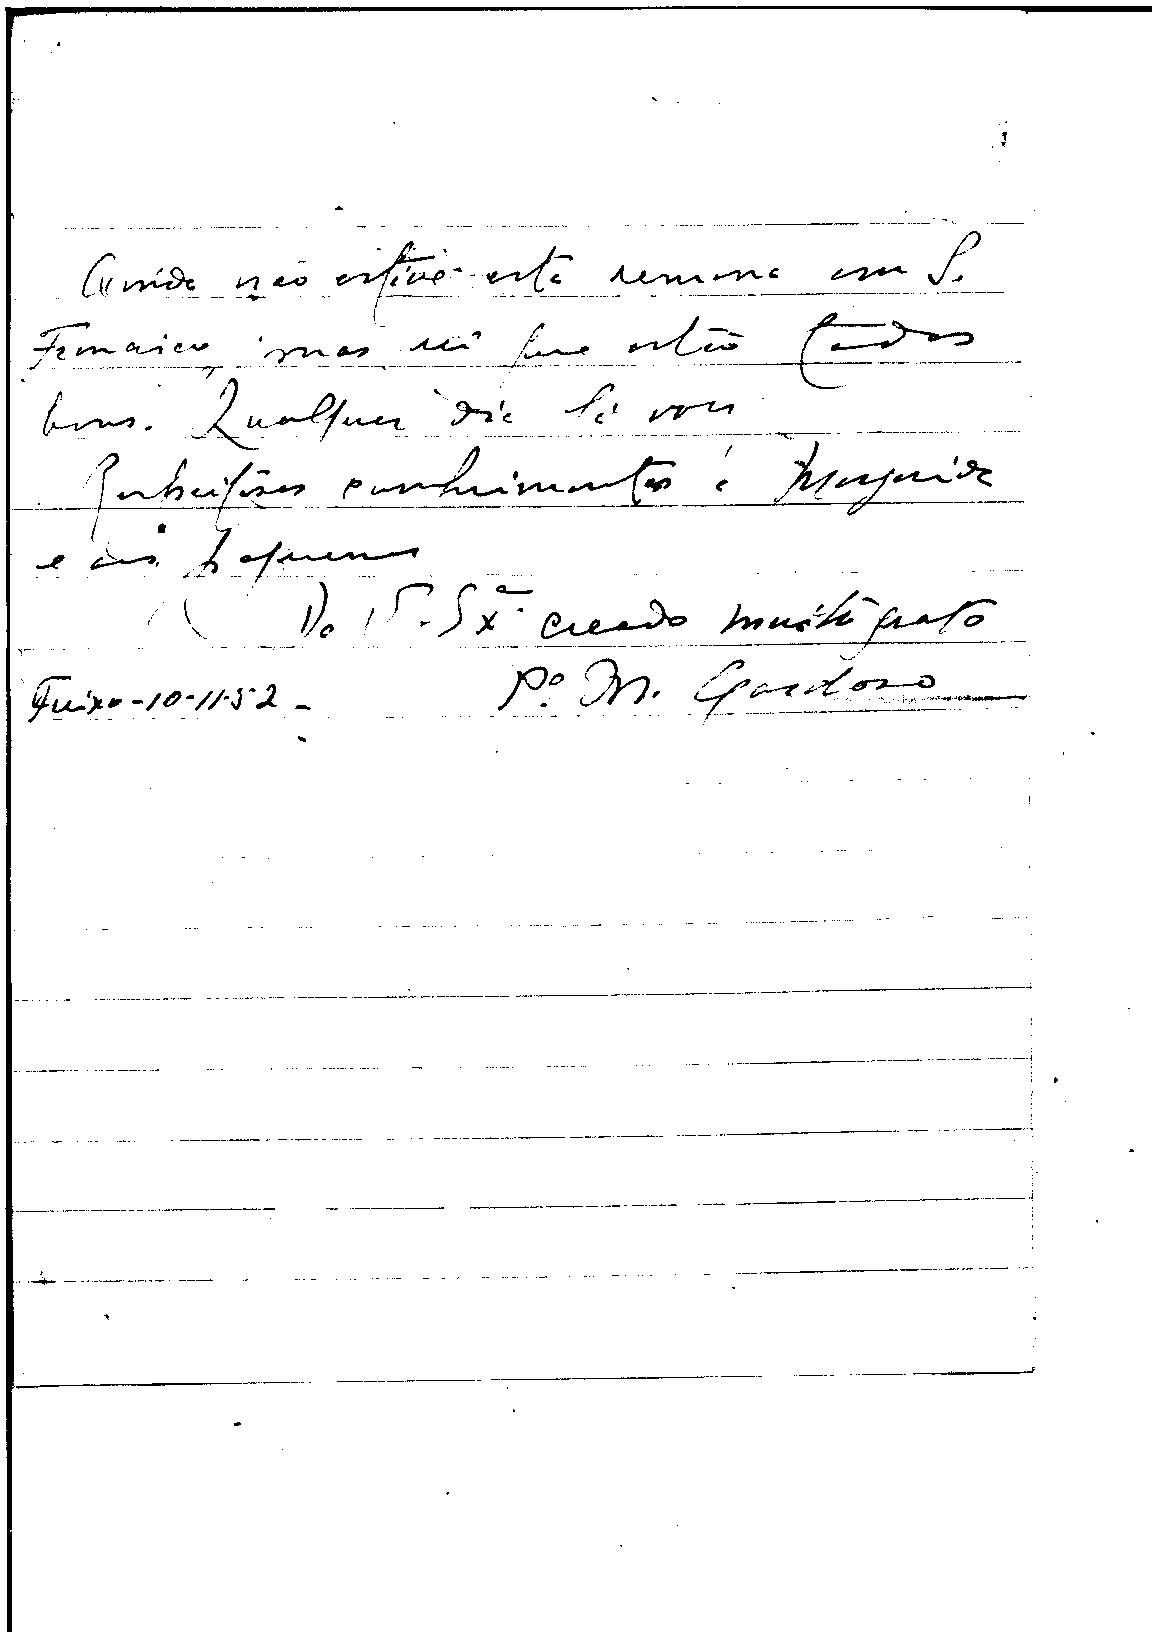 Ainda não estive esta semana em S.
Francisco, mas sei que estão todos
bons. Qualquer dia lá vou
Respeitosos cumprimentos á Margarida
e aos pequenos
De V. Exª creado muito grato
Pe. M. Cardoso
Freixo-10-11-52-